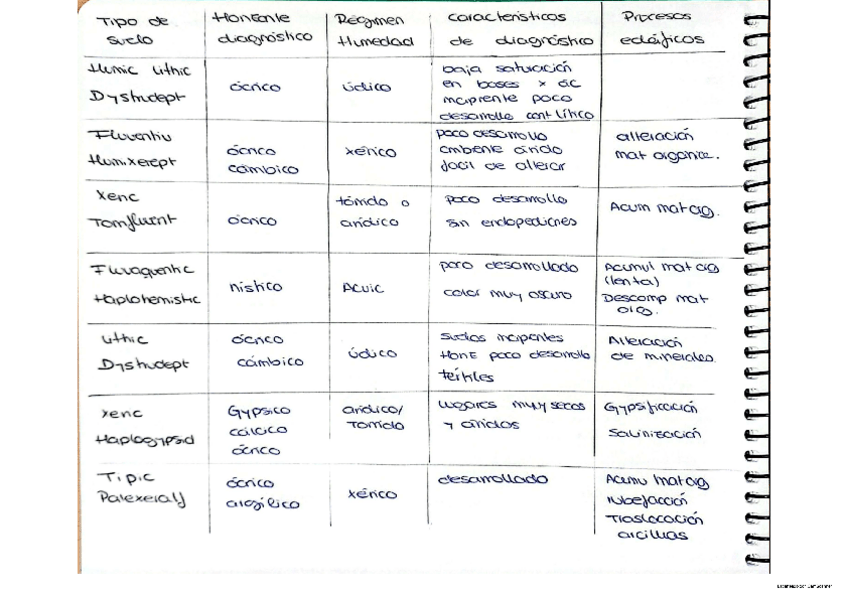 Tipo de suelo
Horizonte diagnóstico
Régimen Humedad
características de diagnóstico
Procesos edáficos
Humic Lithic Dystrudept
ócrico
údico
baja saturación
en bases x ác
poco
desarrollo cont lítico
Fluventiu
Humixerept
ócrico
cámbico
xérico
poco desarrollo
ambiente árido
fácil de alterar
alteración
mat organica.
Xeric
Torrifluvent
ócrico
tórrido o
arídico
poco desarrollo
sin
Acum mat org.
Fluvaquentic
Haplohemistic
hístico
Acuic
poco desarrollado
color muy oscuro
Acumul mat org
(lenta)
Descomp mat
org.
Lithic
Dystrudept
ócrico
cámbico
údico
suelos incipientes
Hont poco desarrollo
Alteración
de minerales.
xeric
Haplogypsid
Gypsico
cálcico
ócrico
arídico/
Torrido
lugares muy secos
y áridos
Gypsificación
Salinización
Tipic
Palexeralf
ócrico
argílico
xérico
desarrollado
Acumu mat org
rubefacción
Traslocación
arcillas